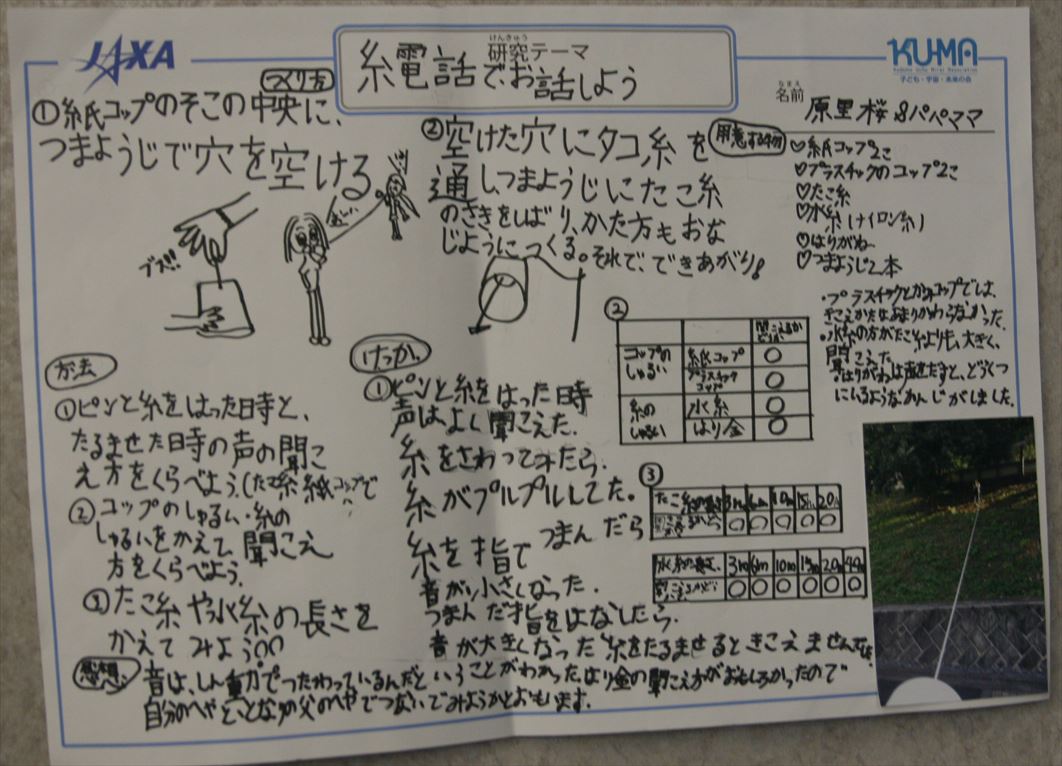 JAXA
けんきゅう
研究テーマ
糸電話でお話しよう
KUMA
子ども・宇宙・未来の会
なまえ
名前
原里桜&パパママ
つくり方
①紙コップのそこの中央に、
つまようじで穴を空ける
ブス!!
②空けた穴にタコ糸を
通し、つまようじにたこ糸
のさきをしばり、かた方もおな
じようにつくる。それで、できあがり!
用意する物
♡紙コップ2こ
♡プラスチックのコップ2こ
♡たこ糸
♡水糸(ナイロン糸)
♡はりがね
♡つまようじ2本
方法
①ピンと糸をはった時と、
たるませた時の声の聞こ
え方をくらべよう。(たこ糸紙コップで
②コップのしゅるい・糸の
しゅるいをかえて、聞こえ
方をくらべよう。
③たこ糸や水糸の長さを
かえてみよう
けっか
①ピンと糸をはった時
声はよく聞こえた。
糸をさわってみたら、
糸がプルプルしてた。
糸を指でつまんだら
音が小さくなった。
つまんだ指をはなしたら、
音が大きくなった
糸をたるませるときこえません
②
聞こえるか
コップのしゅるい 紙コップ ○
プラスチックコップ ○
糸のしゅるい 水糸 ○
はり金 ○
・プラスチックとかみコップでは、
きこえかたはあまりかわらなかった。
・水糸の方がたこ糸よりも、大きく、
聞こえた。
・はりがねは声をだすと、どうくつ
にいるようなかんじがしました。
③
たこ糸の長さ 3m 6m 10m 15m 20m
○ ○ ○ ○ ○
水糸の長さ 3m 6m 10m 15m 20m 40m
○ ○ ○ ○ ○ ○
感想
音は、しん動でつたわっているんだということがわかった。はり金の聞こえ方がおもしろかったので
自分のへやととなりの父のへやでつないでみようかとおもいます。